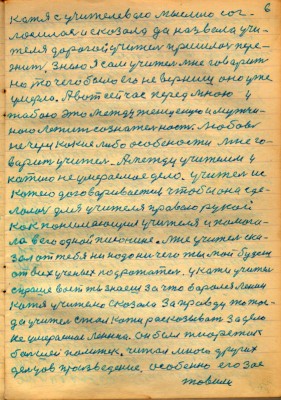 6
Катя с учителевого мнением сог-
ласилас и сказала да назвала учи-
теля дорогой учитель пришлох пере-
жит. Знаю я сам учитель мне говорит
но то чего было его не вернеш оно уже
умерло. А вот сейчас передмною и
тобою это между женщиною и мужчи-
ною лежит сознательност. Любовь
не чери какие либо особености мне го-
варит учитель. А между учителем и
катию не умераемое дело. учитель и с
катею договаривается чтобы она сде-
лалас для учителя правою рукой
как понемающая учителя и помога-
ла в его одной тишине. Мне учитель ска-
зал от тебя ни надо ничего ты мой будеш
от всех ученых подражател. у кати учител
спрашевает ты знаеш за что боролся Ленин
катя учителю сказала за правду то тог-
да учител стал кати рассказыват за дело
не умераемое Ленина. он был теоретик
большей политек. читал много других
делцов произведение, особенно его зае
товили